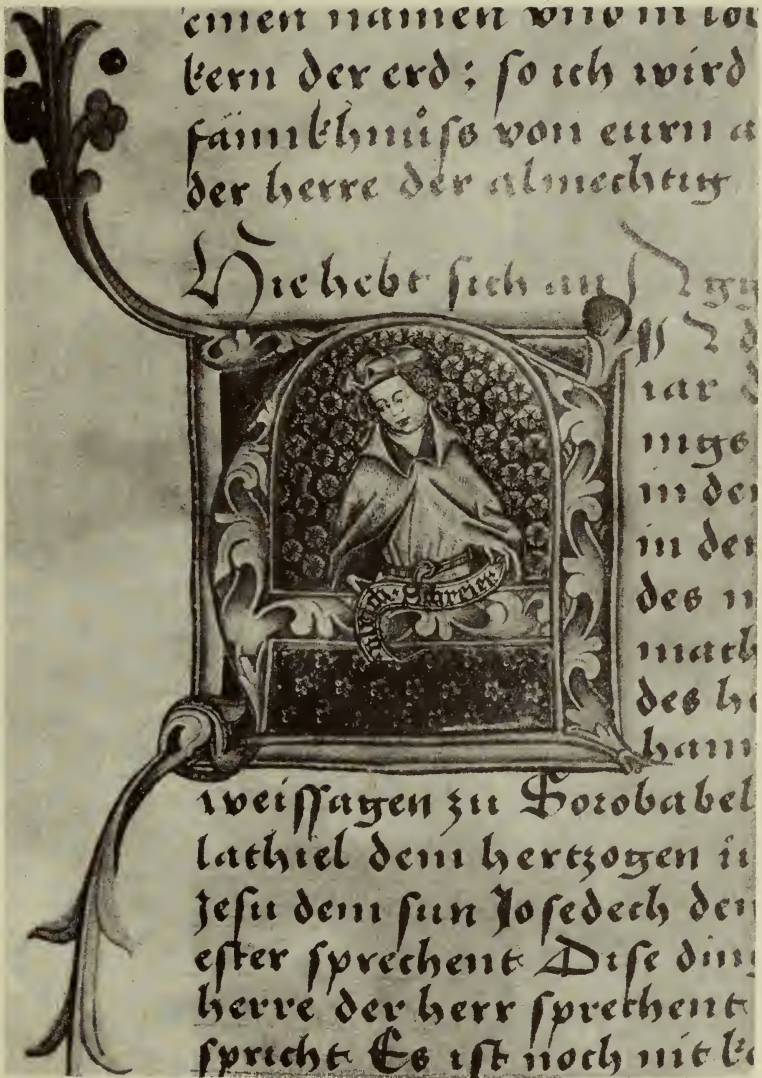 einen namen vnd in lob
kern der erd : so ich wird
fännkhnüss von eurn a
der herre der almechtig
Hie hebt sich an Agg
iar d
nigs
in der
in der
des n
mach
des he
ham
Schreier
weissagen zu Sorobabel
lathiel dem hertzogen in
Jesu dem sun Josedech den
ester sprechent Dise ding
herre der herr sprechent
spricht Es ist noch nit ko